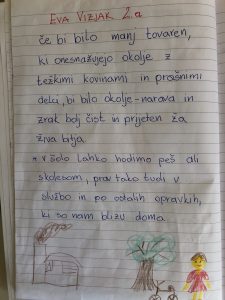 EVA VIZJAK 2.a
če bi bilo manj tovaren,
ki onesnažujejo okolje z
težkimi kovinami in prašnimi
delci, bi bilo okolje-narava in
zrak bolj čist in prijeten za
živa bitja.
* v šolo lahko hodimo peš ali
skolesom, prav tako tudi v
službo in po ostalih opravkih,
ki so nam blizu doma.